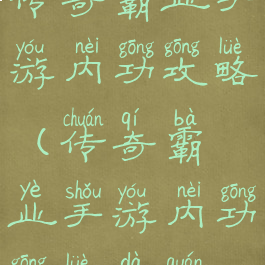 传奇霸业手
yóu nèi gōng gōng lüè
游内功攻略
chuán qí bà
(传奇霸
yè shǒu yóu nèi gōng
业手游内功
gōng lüè dà quán